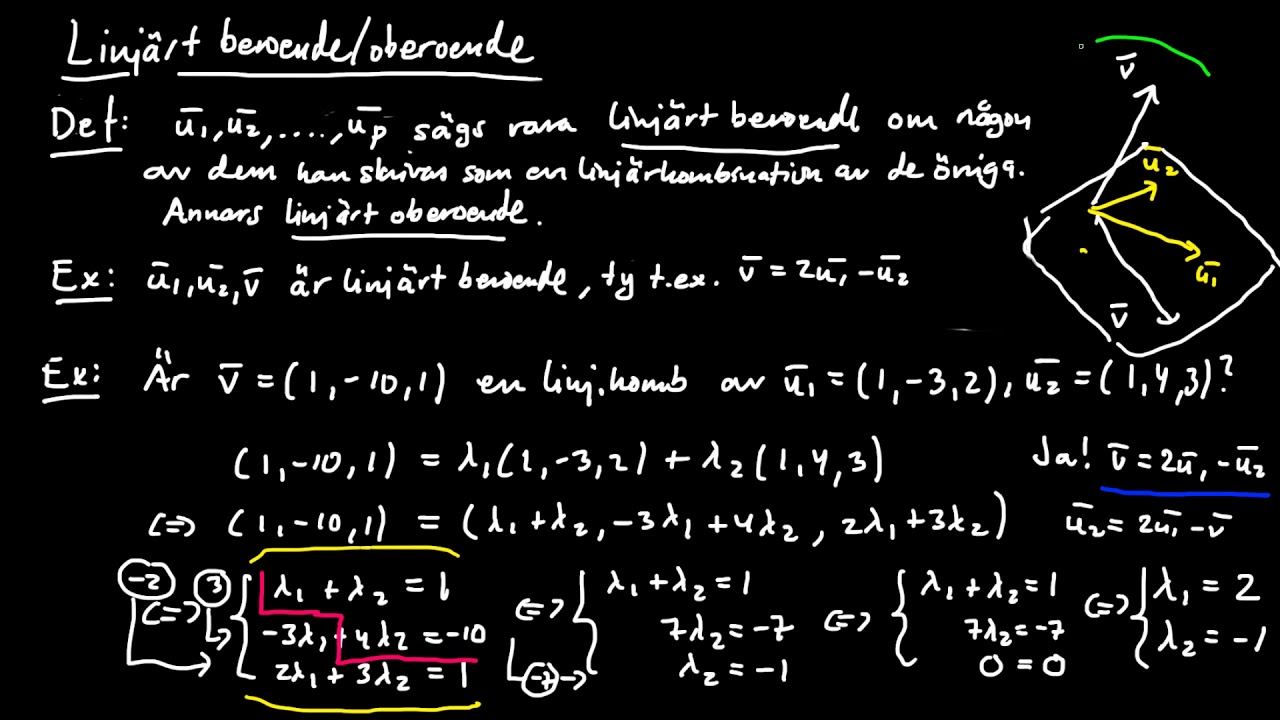 Linjärt beroende/oberoende
Def: ū₁, ū₂, ...., ūp sägs vara linjärt beroende om någon
av dem kan skrivas som en linjärkombination av de övriga.
Annars linjärt oberoende.
Ex: ū₁, ū₂, v̄ är linjärt beroende, ty t.ex. v̄ = 2ū₁ - ū₂
v̄
u₂
ū₁
v̄
Ex: Är v̄ = (1, -10, 1) en linj.komb av ū₁ = (1, -3, 2), ū₂ = (1, 4, 3)?
(1, -10, 1) = λ₁(1, -3, 2) + λ₂(1, 4, 3)
Ja! v̄ = 2ū₁ - ū₂
<=> (1, -10, 1) = (λ₁ + λ₂, -3λ₁ + 4λ₂, 2λ₁ + 3λ₂)
ū₂ = 2ū₁ - v̄
-2 <=> 3 { λ₁ + λ₂ = 1 <=> { λ₁ + λ₂ = 1 <=> { λ₁ + λ₂ = 1 <=> { λ₁ = 2
-3λ₁ + 4λ₂ = -10 7λ₂ = -7 7λ₂ = -7 λ₂ = -1
2λ₁ + 3λ₂ = 1 -7 λ₂ = -1 0 = 0